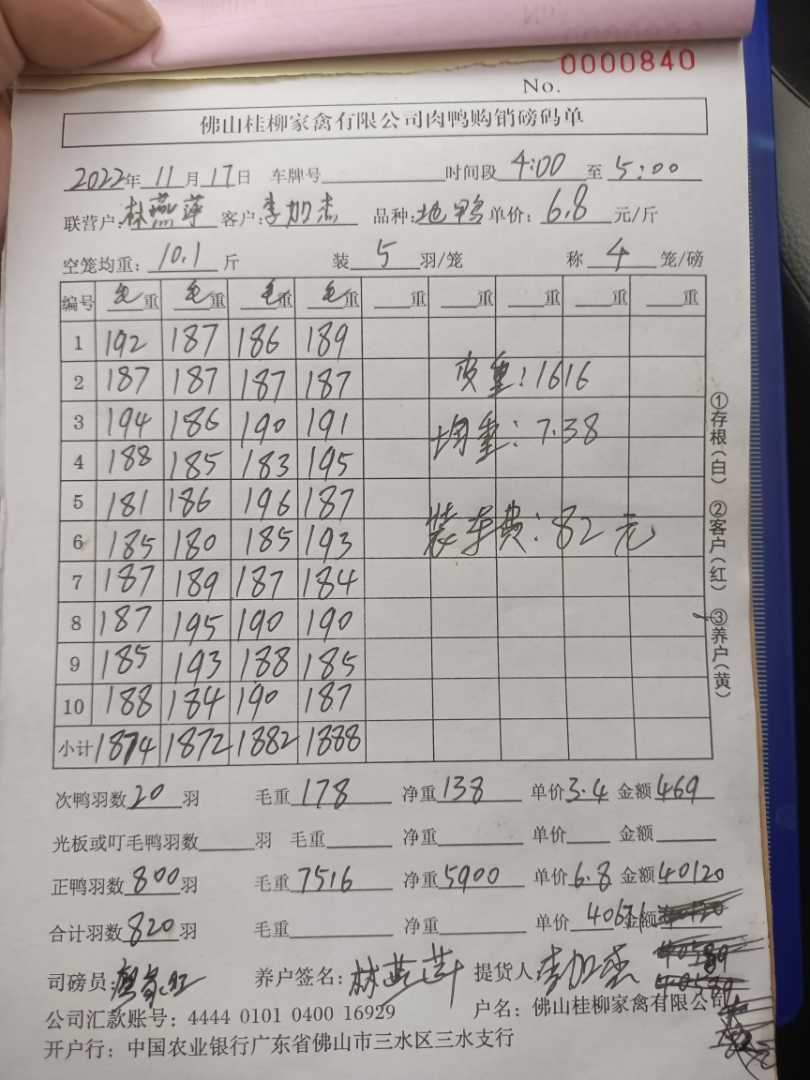 0000840
No.
佛山桂柳家禽有限公司肉鸭购销磅码单
2022年 11月 17日 车牌号 时间段 4:00 至 5:00
联营户:林燕萍 客户:李加杰 品种:地鸭 单价: 6.8 元/斤
空笼均重: 10.1 斤 装 5 羽/笼 称 4 笼/磅
编号 毛重 毛重 毛重 毛重 重 重 重 重 重
1 192 187 186 189
2 187 187 187 187
皮重:1616
3 194 186 190 191
均重:7.38
4 188 185 183 195
5 181 186 196 187
装车费:82元
6 185 180 185 193
7 187 189 187 184
8 187 195 190 190
9 185 193 188 185
10 188 184 190 187
小计 1874 1872 1882 1888
①存根(白) ②客户(红) ③养户(黄)
次鸭羽数 20 羽 毛重 178 净重 138 单价 3.4 金额 469
光板或叮毛鸭羽数 羽 毛重 净重 单价 金额
正鸭羽数 800 羽 毛重 7516 净重 5900 单价 6.8 金额 40120
合计羽数 820 羽 毛重 净重 单价 40671 金额
司磅员: 养户签名:林燕萍 提货人 李加杰
公司汇款账号: 4444 0101 0400 16929 户名: 佛山桂柳家禽有限公司
开户行: 中国农业银行广东省佛山市三水区三水支行